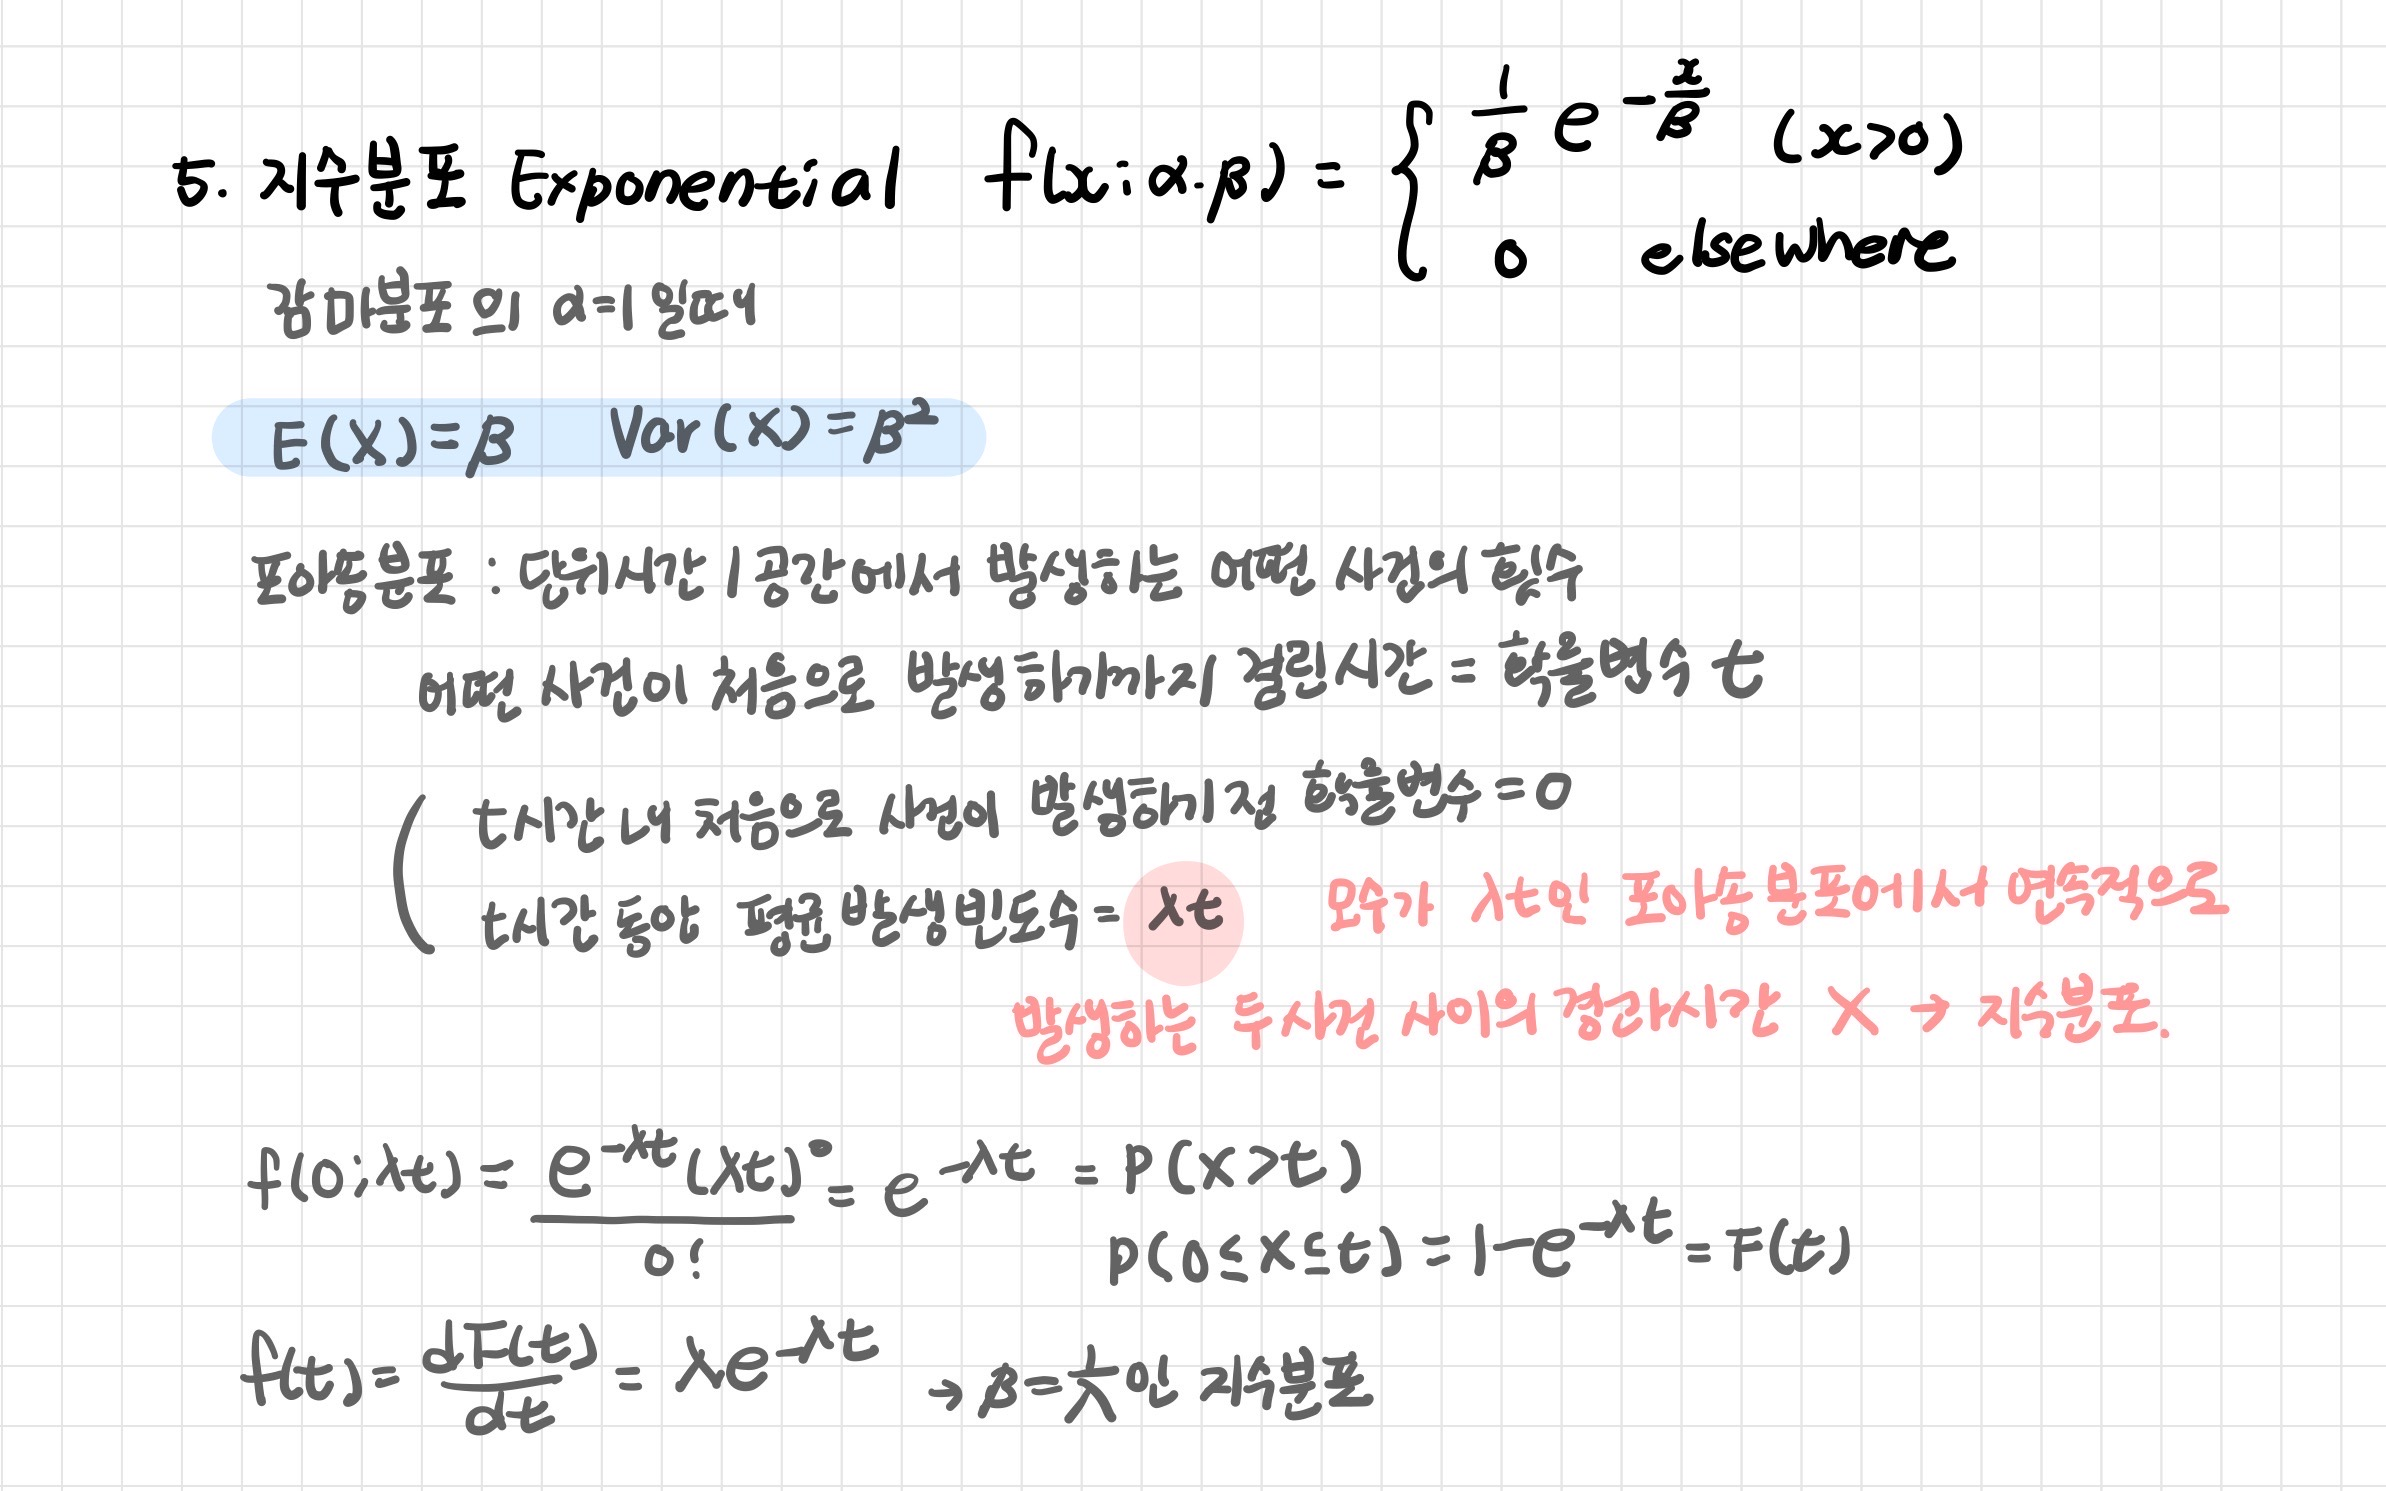 5. 지수분포 Exponential f(x; α.β) = { 1/β e^(-x/β) (x>0)
0 elsewhere
감마분포의 α=1 일때
E(X)=β Var(X)=β²
포아송분포 : 단위시간 / 공간에서 발생하는 어떤 사건의 횟수
어떤 사건이 처음으로 발생하기까지 걸린시간 = 확률변수 t
( t시간 내 처음으로 사건이 발생하기 전 확률변수 = 0
t시간 동안 평균 발생빈도수 = λt
모수가 λt인 포아송분포에서 연속적으로
발생하는 두사건 사이의 경과시간 X → 지수분포.
f(0;λt) = e^(-λt)(λt)^0 / 0! = e^(-λt) = P(X>t)
P(0≤X≤t) = 1-e^(-λt) = F(t)
f(t) = dF(t)/dt = λe^(-λt) → β=1/λ 인 지수분포